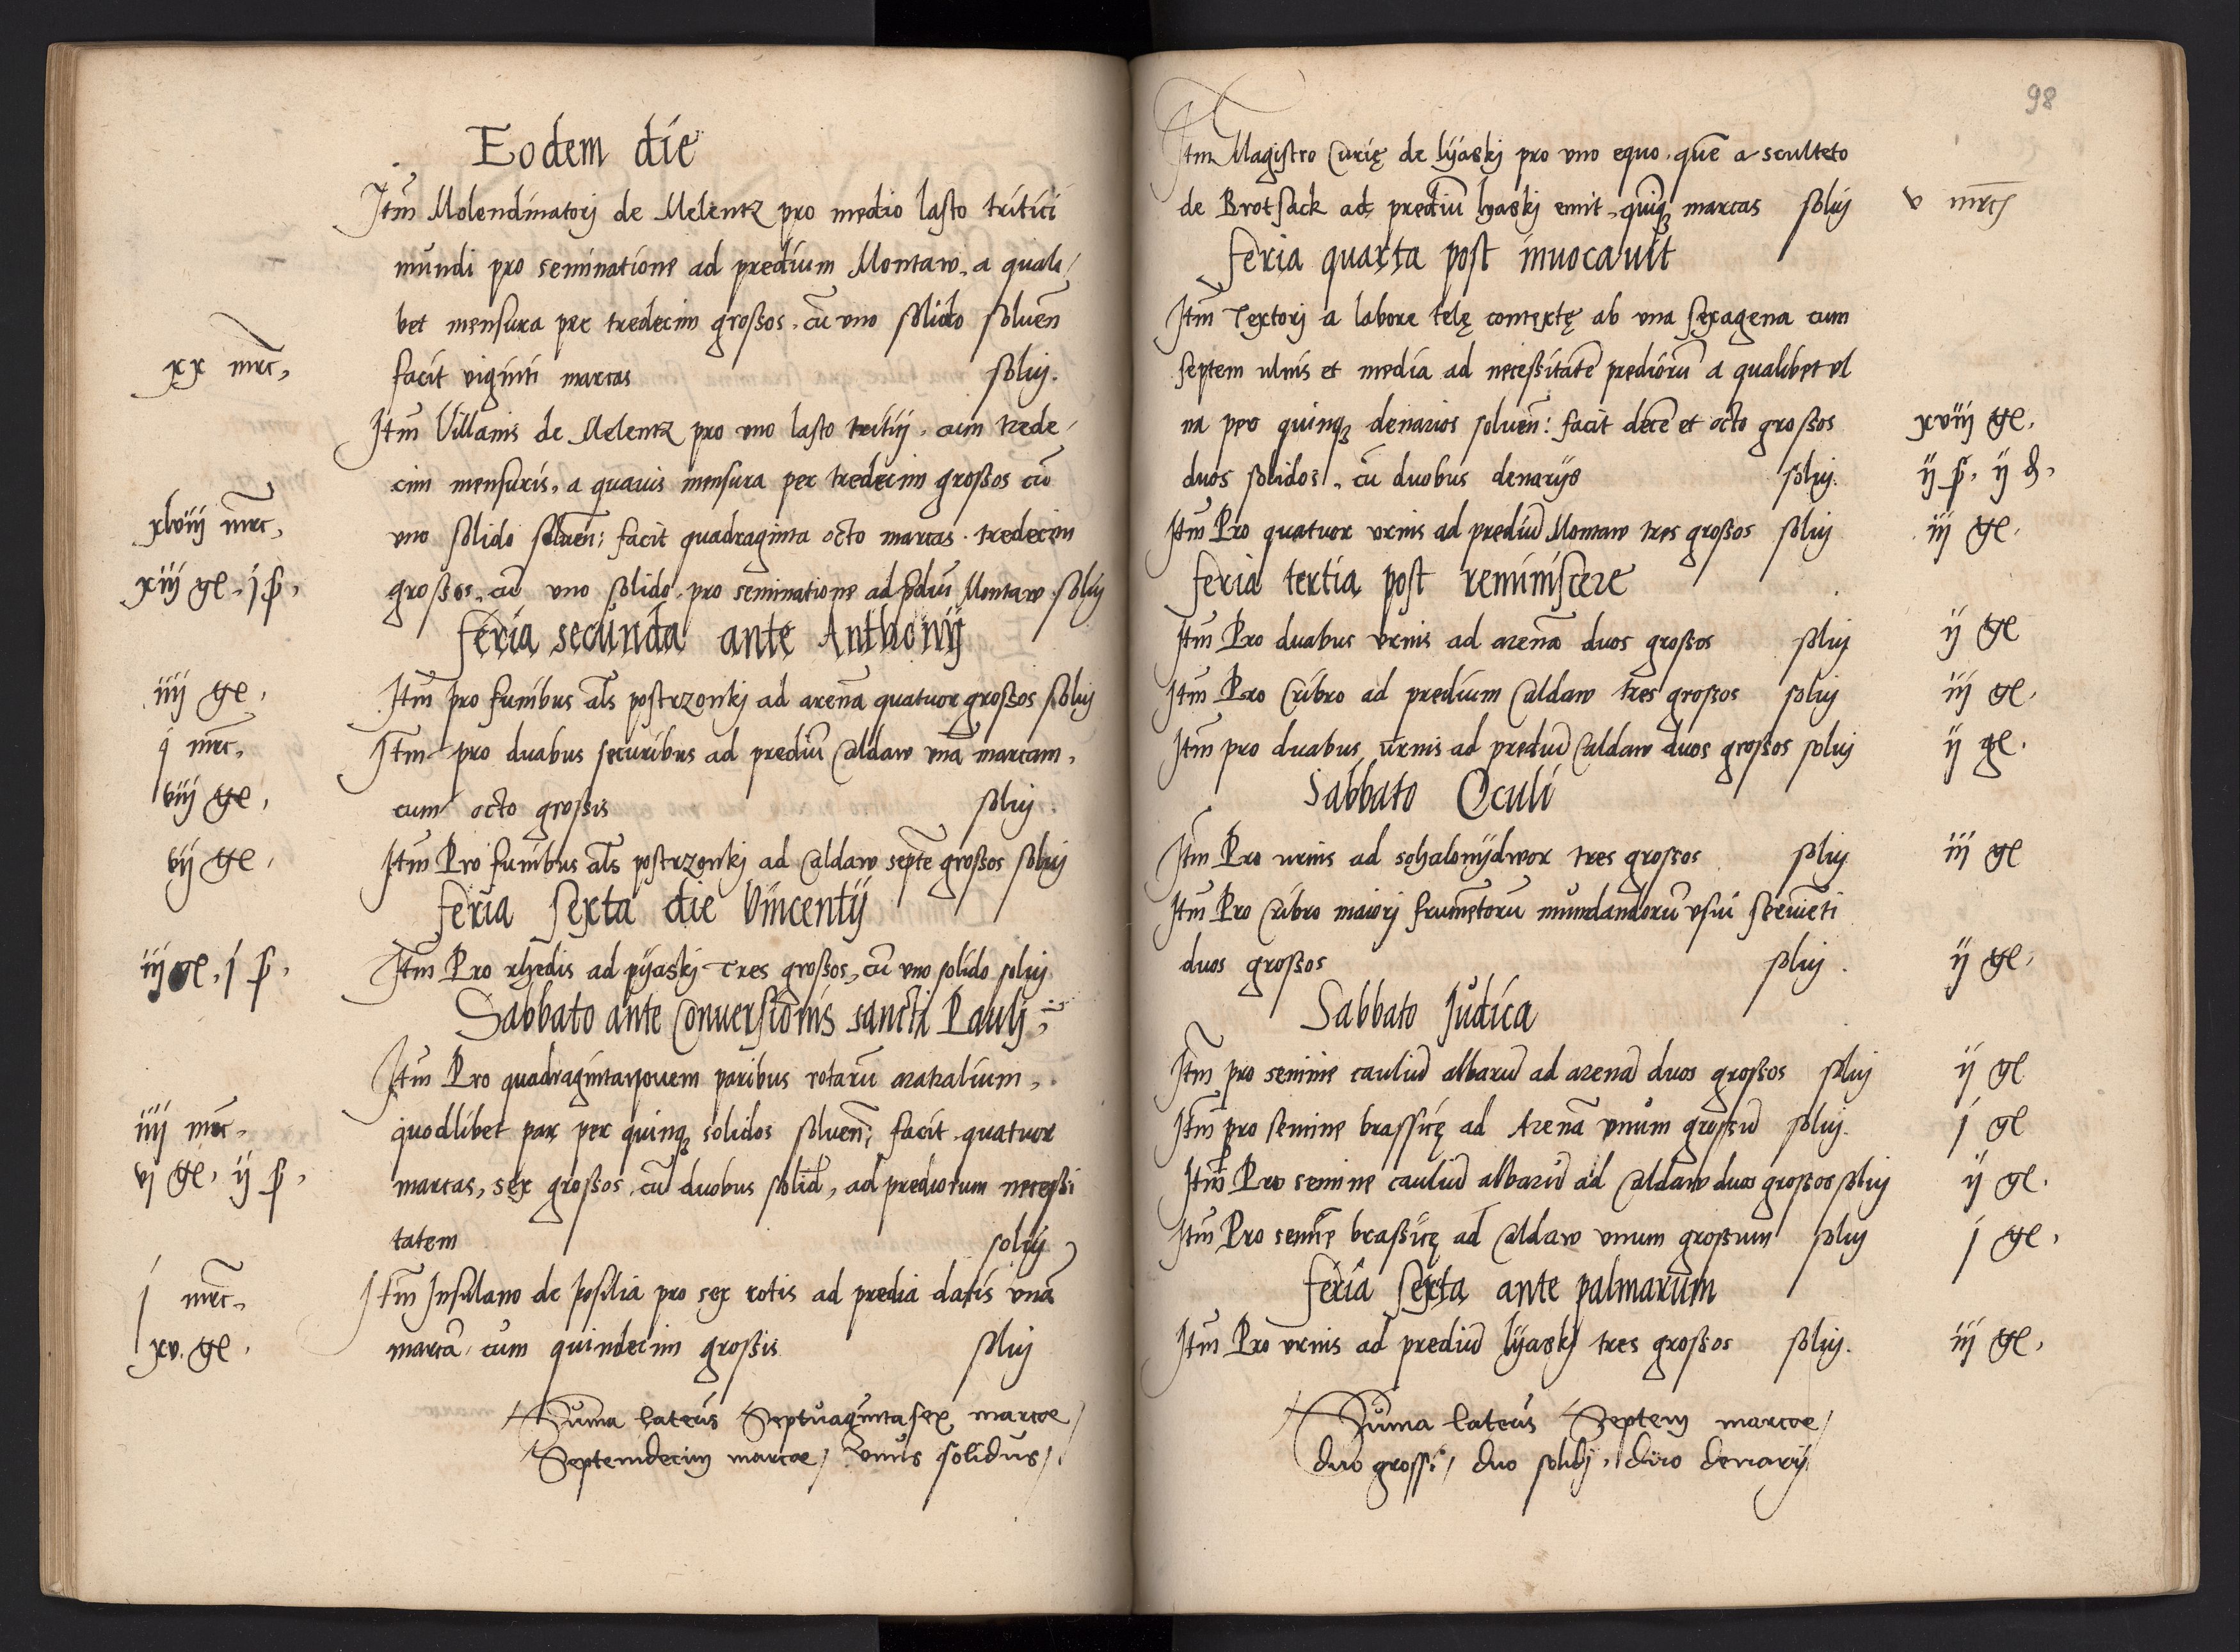 Eodem die
Itm Molendinatorj de Melentz pro medio lasto tritici
mundi pro seminatione ad predium Montaw, a quali/
bet mensura per tredecim großos, cū uno solido soluen̄
xx mrc, facit viginti marcas soluj.
Itm Villanis de Melentz pro uno lasto tritij, cum trede/
cim mensuris, a quavis mensura per tredecim großos cū
xlviij mrc, uno solido soluen̄: facit quadraginta octo marcas. tredecim
xiij gl, j ß, großos, cū uno solido, pro seminatione ad p̄diū Montaw soluj
feria secunda ante Anthonij
iiij gl, Itm pro funibus als postrzonkj ad arenā quatuor großos soluj
j mrc, Itm pro duabus securibus ad prediū Caldaw unā marcam,
viij gl, cum octo großis soluj.
vij gl, Itm Pro funibus als postrzonkj ad Caldaw septē großos soluj
feria sexta die Vincentij
iij gl, j ß, Itm Pro rhedis ad pijaskj Tres großos, cū uno solido soluj
Sabbato ante Conuersionis sancti Paulj
Itm Pro quadragintanouem paribus rotarū aratralium,
iiij mrc, quodlibet par per quinq3 solidos soluen̄: facit quatuor
vj gl, ij ß, marcas, sex großos, cū duobus solid, ad prediorum necessi
tatem soluj
j mrc, Itm Insulano de Posilia pro sex rotis ad predia datis unā
xv. gl. marcā cum quindecim großis soluj
Suma lateris Septuagintasex marcae/
Septemdecim marcae/ unus solidus/
98
Itm Magistro Curię de lijaskj pro uno equo, quē a sculteto
de Brotsack ad prediū lyaskj emit, quinq3 marcas soluj v mrc
feria quarta post inuocauit
Itm Textorj a labore telę contextę ab una sexagena cum
septem ulnis et media ad necessitatē prediorū a qualibet ul
na per quinq3 denarios soluen̄: facit decē et octo großos xviij gl,
duos solidos, cū duobus denarijs soluj. ij ß, ij d,
Itm Pro quatuor urnis ad prediū Montaw tres großos soluj iij gl,
feria tertia post reminiscere
Itm Pro duabus urnis ad arenā duos großos soluj ij gl
Itm Pro Cribro ad predium Caldaw tres großos soluj iij gl.
Itm pro duabus urnis ad prediū Caldaw duos großos soluj ij gl.
Sabbato Oculi
Itm Pro urnis ad schalonijdwor tres großos soluj iij gl
Itm Pro Cribro maiorj frumētorū mundandorū usui
duos großos soluj. ij gl,
Sabbato Judica
Itm pro semine cauliū albarū ad arenā duos großos soluj ij gl
Itm pro semine brassicę ad Arenā unum großū soluj. j gl
Itm Pro semine cauliū albarū ad Caldaw duos großos soluj ij gl.
Itm Pro semīe braßicę ad Caldaw unum großum soluj j gl,
feria sexta ante palmarum
Itm Pro urnis ad prediū lijaskj tres großos soluj. iij gl,
Suma lateris Septem marcae/
duo grossi/ duo solidj, duo denarij